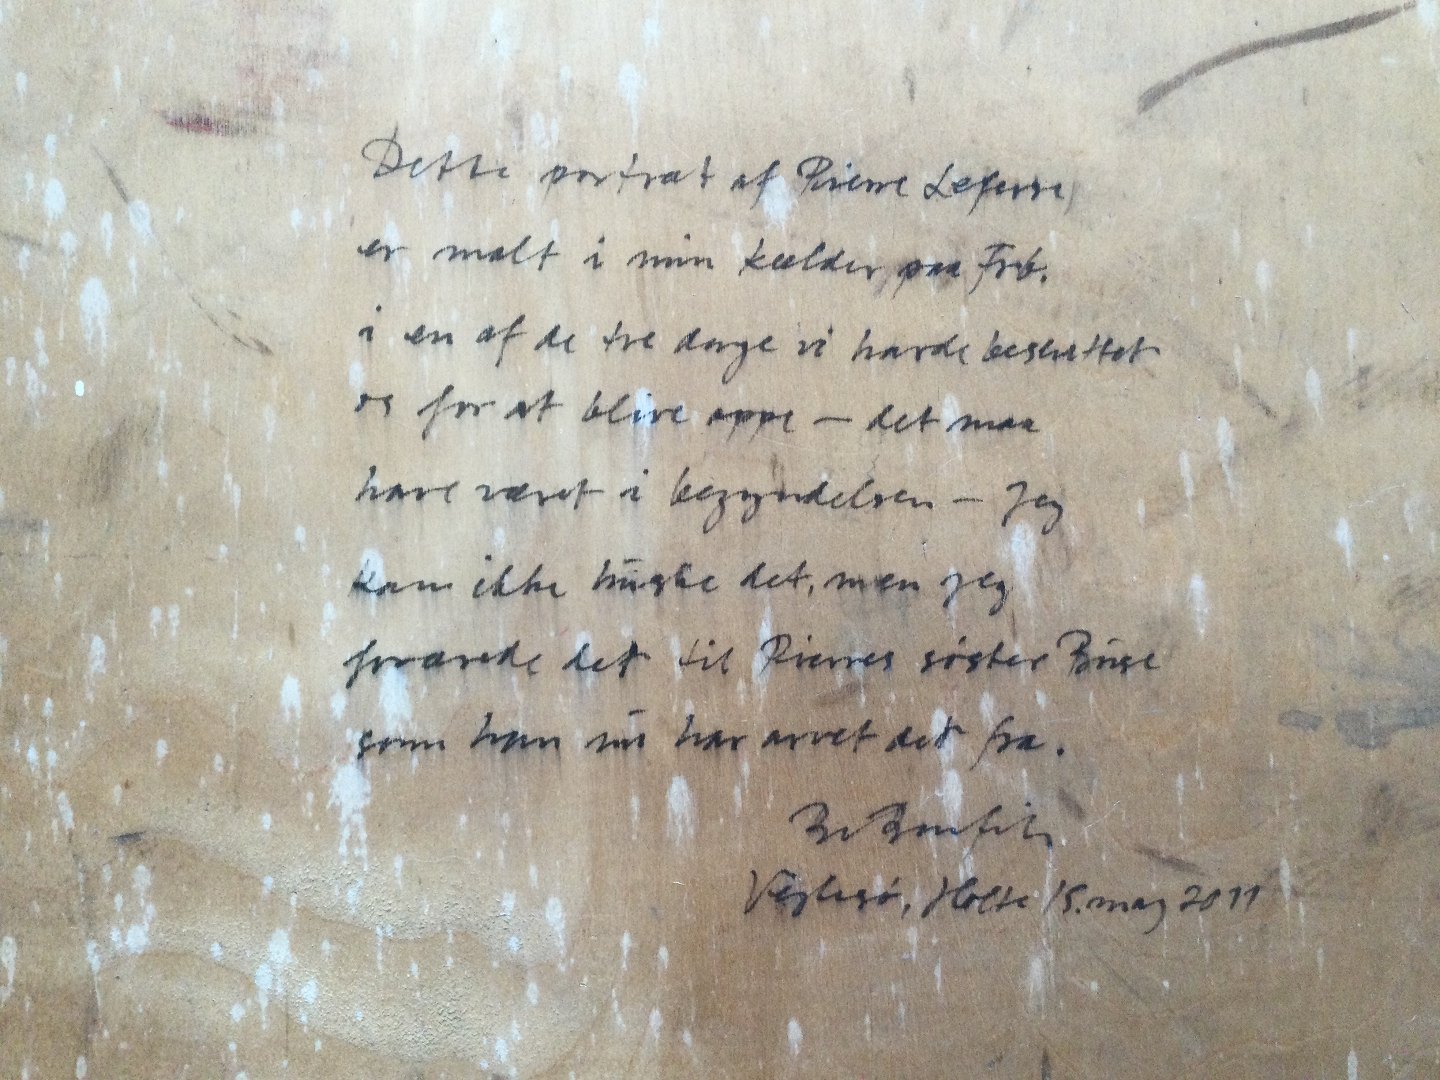 Dette portræt af Pierre Leferre,
er malt i min kælder, paa Frb.
i en af de tre dage vi havde besluttet
os for at blive oppe — det maa
have været i begyndelsen — Jeg
kan ikke huske det, men jeg
forærede det til Pierres søster
som han nu har arvet det fra.
Bonfils
Vejlesø, Holte 15. maj 2011